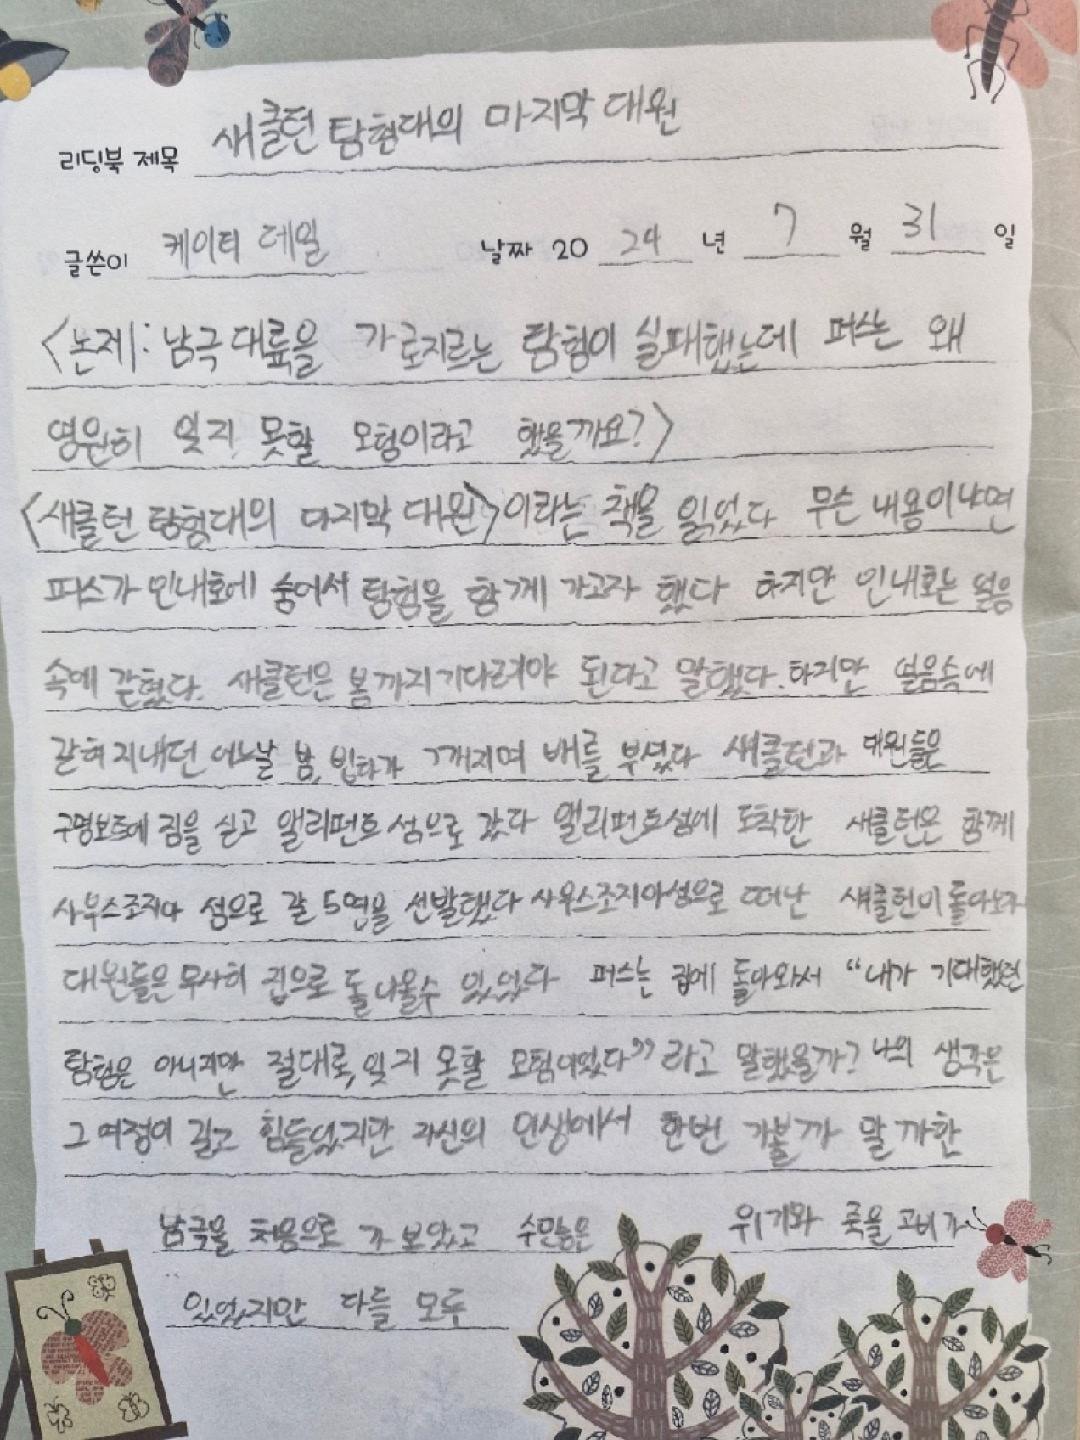 리딩북 제목 새클턴 탐험대의 마지막 대원
글쓴이 케이티 데일 날짜 20 24 년 7 월 31 일
<논제: 남극 대륙을 가로지르는 탐험이 실패했는데 퍼스는 왜
영원히 잊지 못할 모험이라고 했을까요?>
<새클턴 탐험대의 마지막 대원>이라는 책을 읽었다 무슨 내용이냐면
퍼스가 인내호에 숨어서 탐험을 함께 가고자 했다 하지만 인내호는 얼음
속에 갇혔다. 새클턴은 봄까지 기다려야 된다고 말했다. 하지만 얼음속에
갇혀 지내던 어느날 봄, 빙하가 깨지며 배를 부셨다 새클턴과 대원들은
구명보트에 짐을 싣고 앨리펀트 섬으로 갔다 앨리펀트섬에 도착한 새클턴은 함께
사우스조지아 섬으로 갈 5명을 선발했다 사우스조지아섬으로 떠난 새클턴이 돌아오자
대원들은 무사히 집으로 돌아올수 있었다 퍼스는 집에 돌아와서 “내가 기대했던
탐험은 아니지만 절대로, 잊지 못할 모험이었다” 라고 말했을까? 나의 생각은
그 여정이 길고 힘들었지만 자신의 인생에서 한번 가볼까 말까한
남극을 처음으로 가 보았고 수많은 위기와 죽을 고비가
있었지만 다들 모두